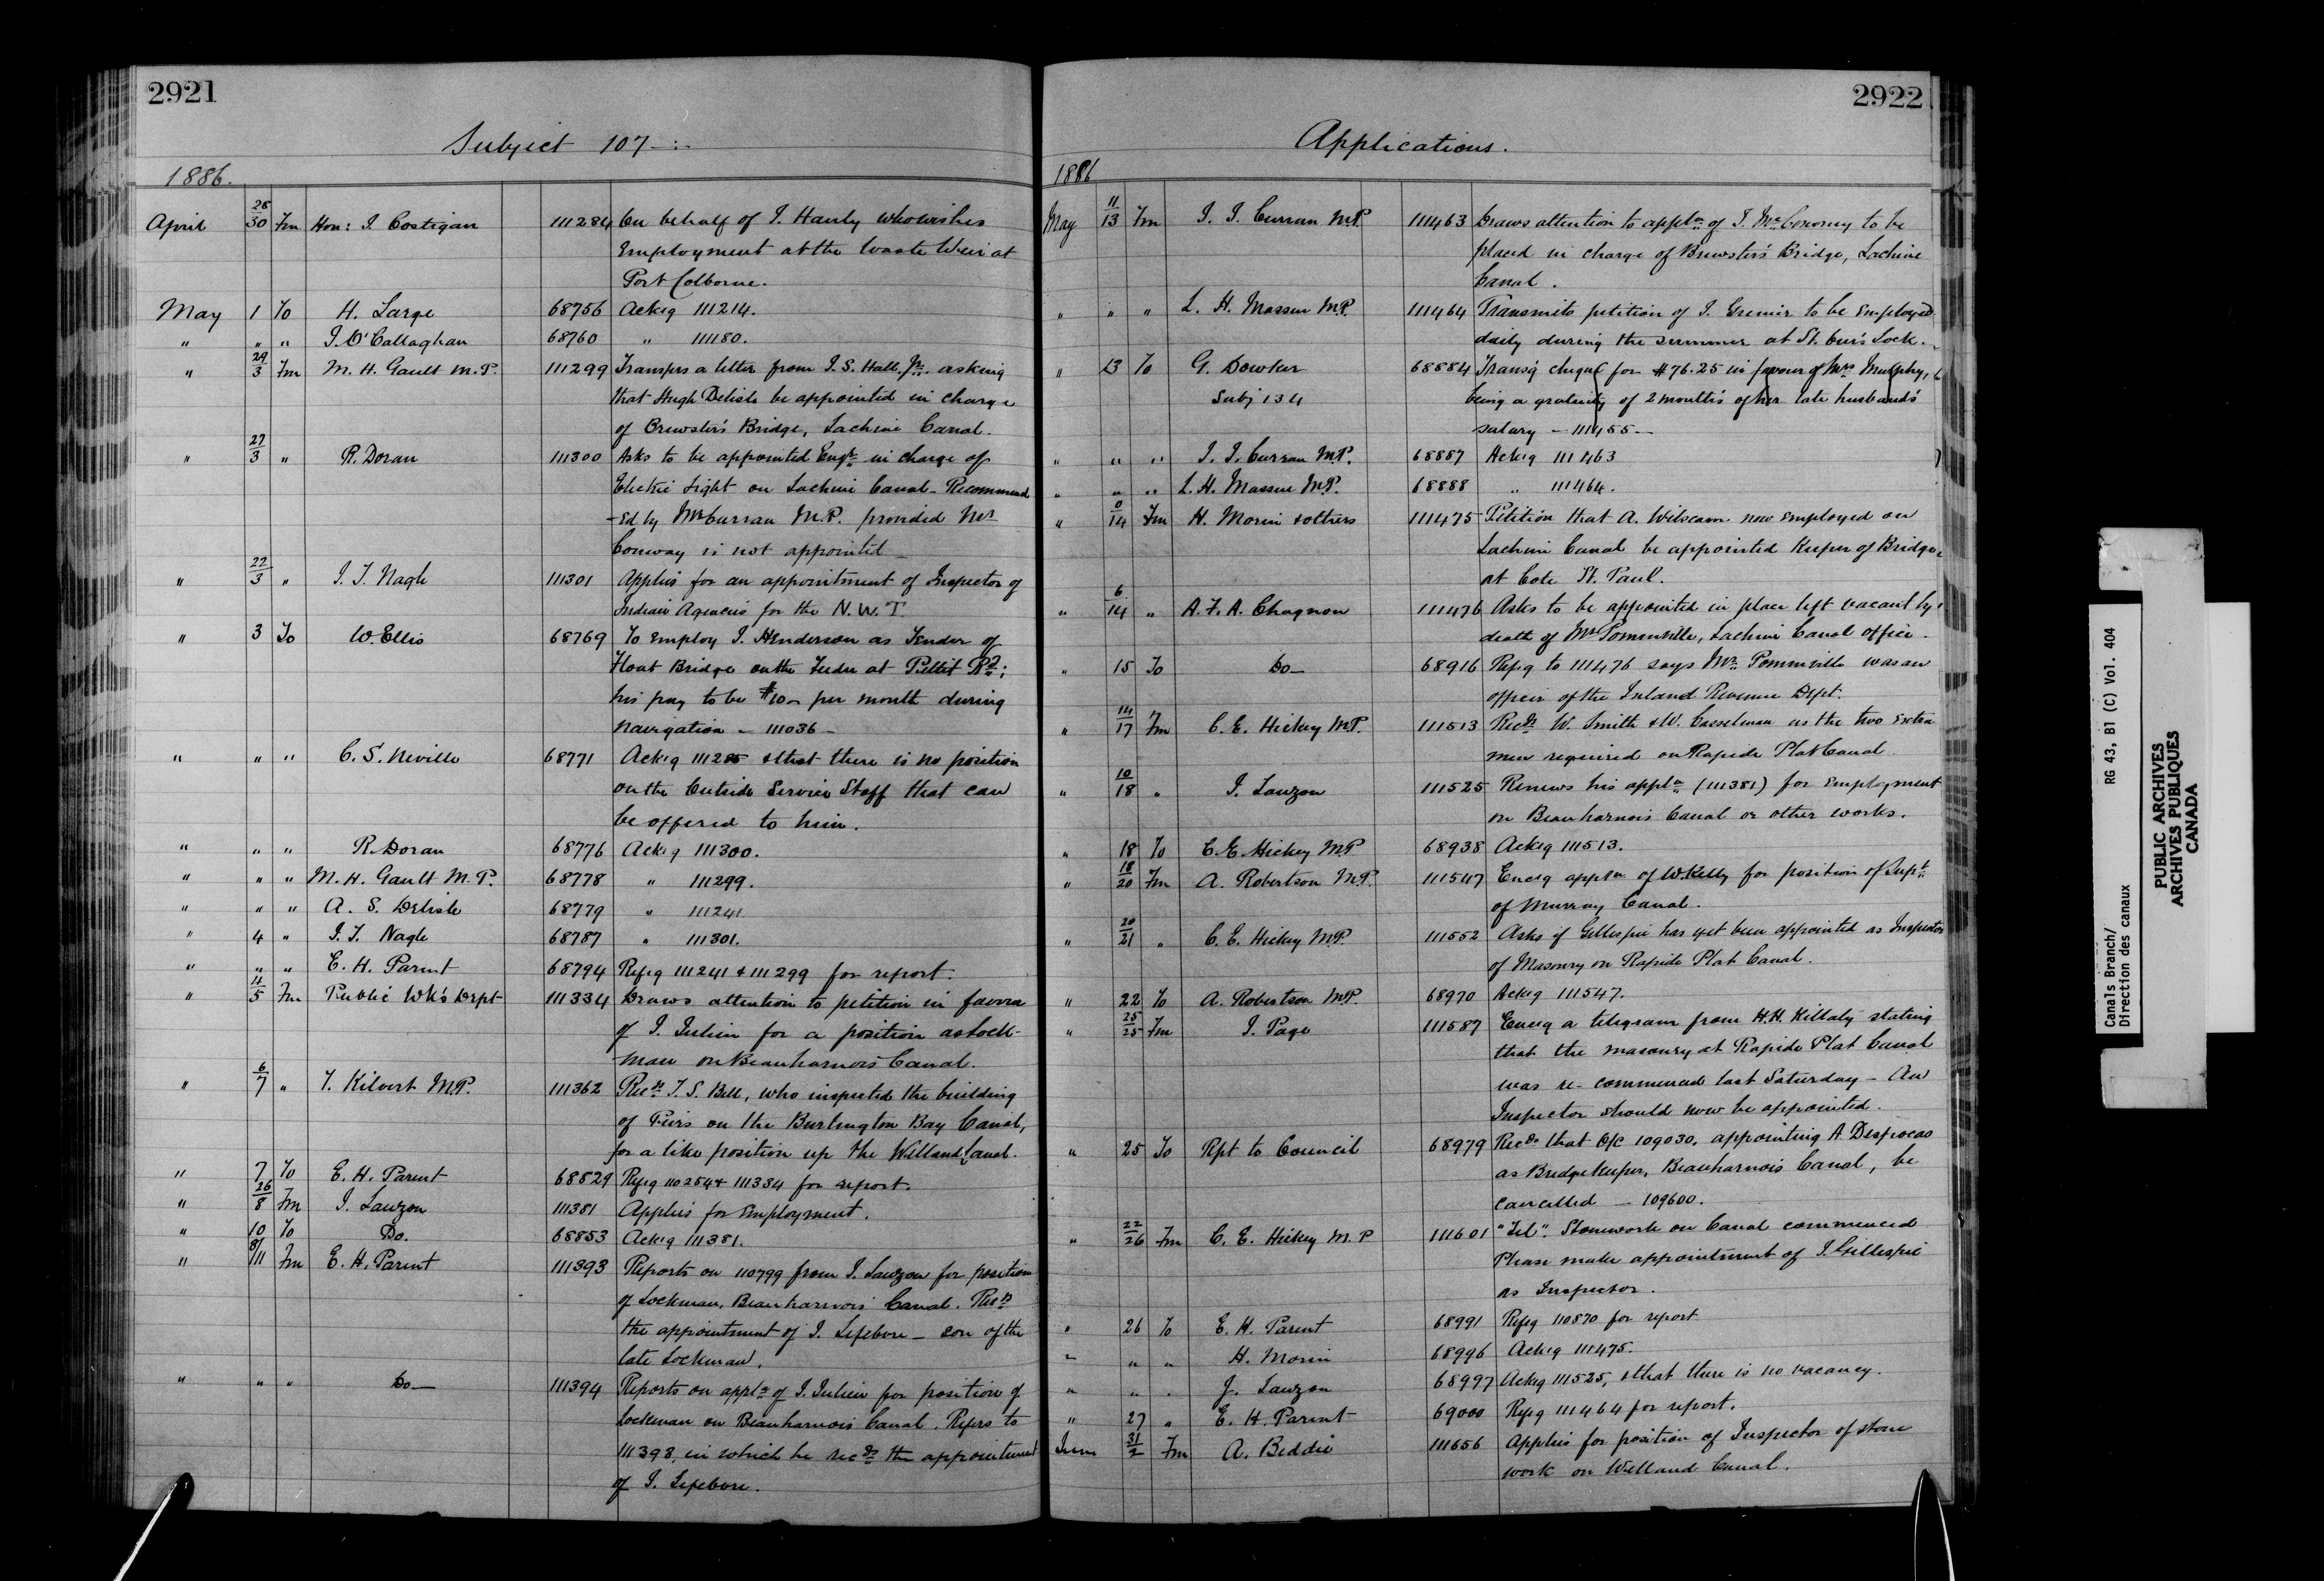 2921
Subject 107 :
1886.
April 28/30 Fm Hon: J. Costigan 111284 On behalf of J. Hanly who wishes
Employment at the Waste Weir at
Port Colborne.
May 1 To H. Large 68756 Ackg 111214.
" " " J. O'Callaghan 68760 " 111180.
" 29/3 Fm M. H. Gault M.P. 111299 Transfers a letter from J. S. Hall Jr. asking
that Hugh Delisle be appointed in charge
of Brewster's Bridge, Lachine Canal.
" 27/3 " R. Doran 111300 Asks to be appointed Engr. in charge of
Electric Light on Lachine Canal - Recommend
-ed by Mr Curran M.P. provided Mr
Conway is not appointed -
" 22/3 " J. T. Nagle 111301 Applies for an appointment of Inspector of
Indian Agencies for the N.W.T.
" 3 To W. Ellis 68769 To employ J. Henderson as Tender of
Float Bridge on the Feeder at Pettit Rd;
his pay to be $10 - per month during
Navigation - 111036 -
" " " C. S. Neville 68771 Ackg 111285 & that there is no position
on the Outside Service Staff that can
be offered to him.
" " " R. Doran 68776 Ackg 111300.
" " " M. H. Gault M.P. 68778 " 111299.
" " " A. S. Delisle 68779 " 111241.
" 4 " J. T. Nagle 68787 " 111301.
" " " E. H. Parent 68794 Refg 111241 & 111299 for report.
" 4/5 Fm Public Wk's Dept 111334 Draws attention to petition in favor
of J. Julien for a position as Lock-
man on Beauharnois Canal.
" 6/7 " T. Kilvert M.P. 111362 Recds T. S. Bell, who inspected the building
of Piers on the Burlington Bay Canal,
for a like position up the Welland Canal.
" 7 To E. H. Parent 68829 Refg 110254 & 111334 for report.
" 26/8 Fm J. Lauzon 111381 Applies for Employment.
" 10 To Do. 68853 Ackg 111381.
" 8/11 Fm E. H. Parent 111393 Reports on 110799 from J. Lauzon for position
of Lockman, Beauharnois Canal. Recds
the appointment of J. Lefebvre - son of the
late Lockman.
" " " Do - 111394 Reports on appln of J. Julien for position of
Lockman on Beauharnois Canal. Refers to
111393, in which he recds the appointment
of J. Lefebvre.
2922
Applications.
1886
May 11/13 Fm J. J. Curran M.P. 111463 Draws attention to appln of T. McConomy to be
placed in charge of Brewster's Bridge, Lachine
Canal.
" " " L. H. Massue M.P. 111464 Transmits petition of J. Grenier to be employed
daily during the summer at St. Ours Lock.
" 13 To G. Dowker 68884 Transg cheque for $76.25 in favour of Mrs Murphy,
Subj 134 being a gratuity of 2 months of her late husband's
salary - 111455 -
" " " J. J. Curran M.P. 68887 Ackg 111463
" " " L. H. Massue M.P. 68888 " 111464.
" 0/14 Fm H. Morin & others 111475 Petition that A. now employed on
Lachine Canal be appointed Keeper of Bridge
at Cote St. Paul.
" 6/14 " A. F. A. Chagnon 111476 Asks to be appointed in place left vacant by
death of Mr Pominville, Lachine Canal office.
" 15 To Do - 68916 Refg to 111476 says Mr. Pominville was an
officer of the Inland Revenue Dept.
" 14/17 Fm C. E. Hickey M.P. 111513 Recds W. Smith & W. Casselman as the two extra
men required on Rapide Plat Canal.
" 10/18 " J. Lauzon 111525 Renews his appln (111381) for employment
on Beauharnois Canal or other works.
" 18 To C. E. Hickey M.P. 68938 Ackg 111513.
" 18/20 Fm A. Robertson M.P. 111547 Encg appln of W. Kelly for position of Supt
of Murray Canal.
" 20/21 " C. E. Hickey M.P. 111552 Asks if Gillespie has yet been appointed as Inspector
of Masonry on Rapide Plat Canal.
" 22 To A. Robertson M.P. 68970 Ackg 111547.
" 25/25 Fm J. Page 111587 Encg a telegram from H. H. Killaly stating
that the masonry at Rapide Plat Canal
was re-commenced last Saturday - An
Inspector should now be appointed.
" 25 To Rpt to Council 68979 Recds that O/C 109030, appointing A.
as Bridge Keeper, Beauharnois Canal, be
cancelled - 109600.
" 22/26 Fm C. E. Hickey M.P 111601 "Tel". Stonework on Canal commenced
Please make appointment of J. Gillespie
as Inspector.
" 26 To E. H. Parent 68991 Refg 110870 for report
" " " H. Morin 68996 Ackg 111475.
" " " J. Lauzon 68997 Ackg 111525, & that there is no vacancy.
" 27 " E. H. Parent 69000 Refg 111464 for report.
June 31/2 Fm A. Beddie 111656 Applies for position of Inspector of stone
work on Welland Canal.
Canals Branch/
Direction des canaux
RG 43, B1 (C) Vol. 404
PUBLIC ARCHIVES
ARCHIVES PUBLIQUES
CANADA